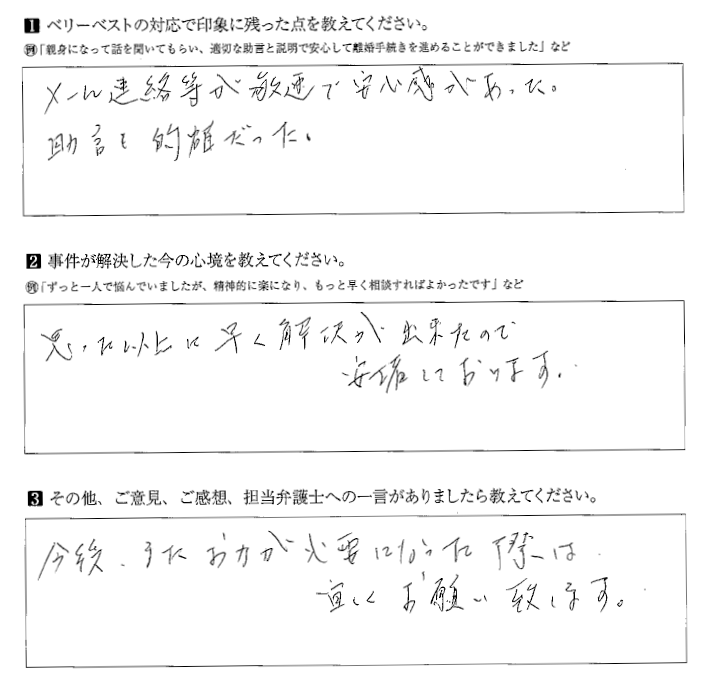 1 ベリーベストの対応で印象に残った点を教えてください。
例「親身になって話を聞いてもらい、適切な助言と説明で安心して離婚手続きを進めることができました」など
メール連絡等が敏速で安心感があった。
助言も的確だった。
2 事件が解決した今の心境を教えてください。
例「ずっと一人で悩んでいましたが、精神的に楽になり、もっと早く相談すればよかったです」など
思った以上に早く解決が出来たので
安堵しております。
3 その他、ご意見、ご感想、担当弁護士への一言がありましたら教えてください。
今後、またお力が必要になった際は
宜しくお願い致します。